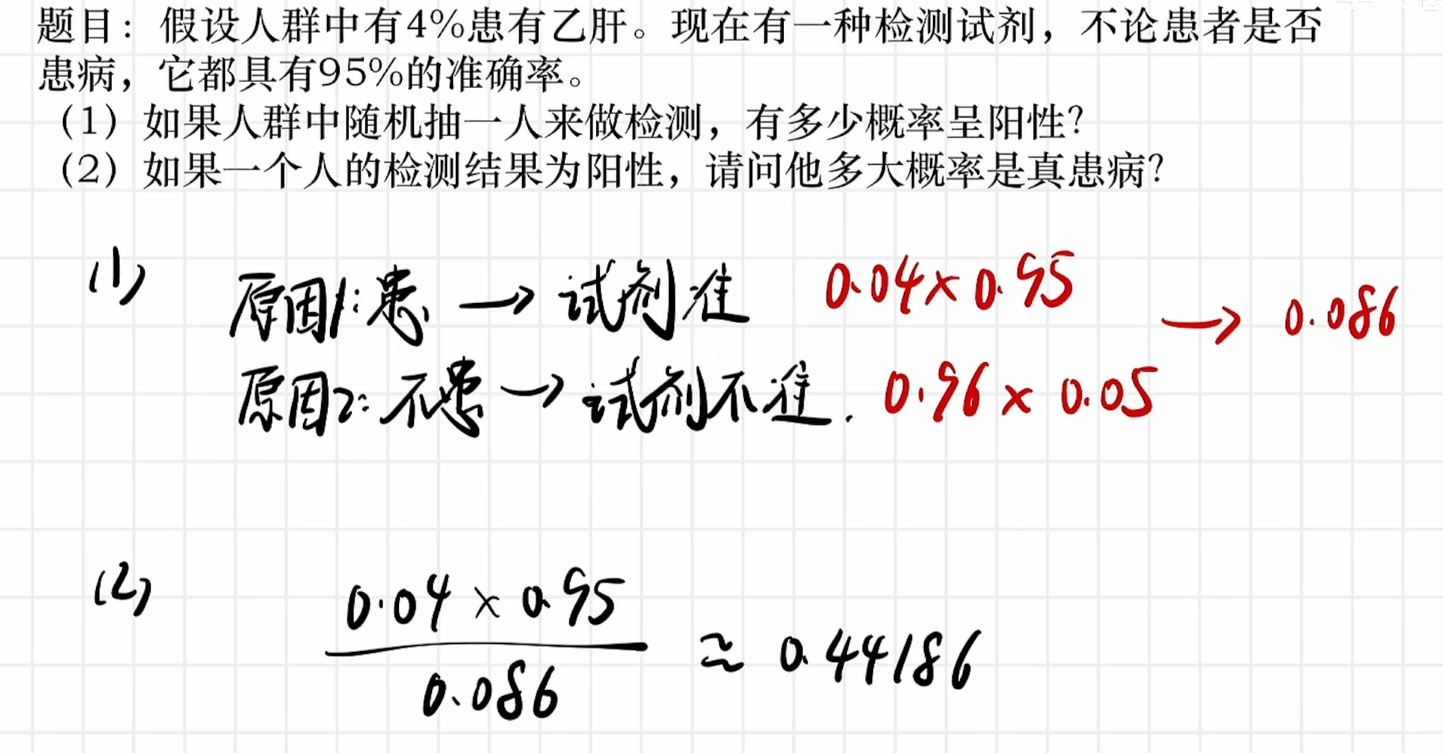 题目：假设人群中有4%患有乙肝。现在有一种检测试剂，不论患者是否
患病，它都具有95%的准确率。
（1）如果人群中随机抽一人来做检测，有多少概率呈阳性？
（2）如果一个人的检测结果为阳性，请问他多大概率是真患病？
(1) 原因1:患 → 试剂准 0.04×0.95 → 0.086
原因2:不患 → 试剂不准. 0.96×0.05
(2) 0.04×0.95
0.086
≈ 0.44186